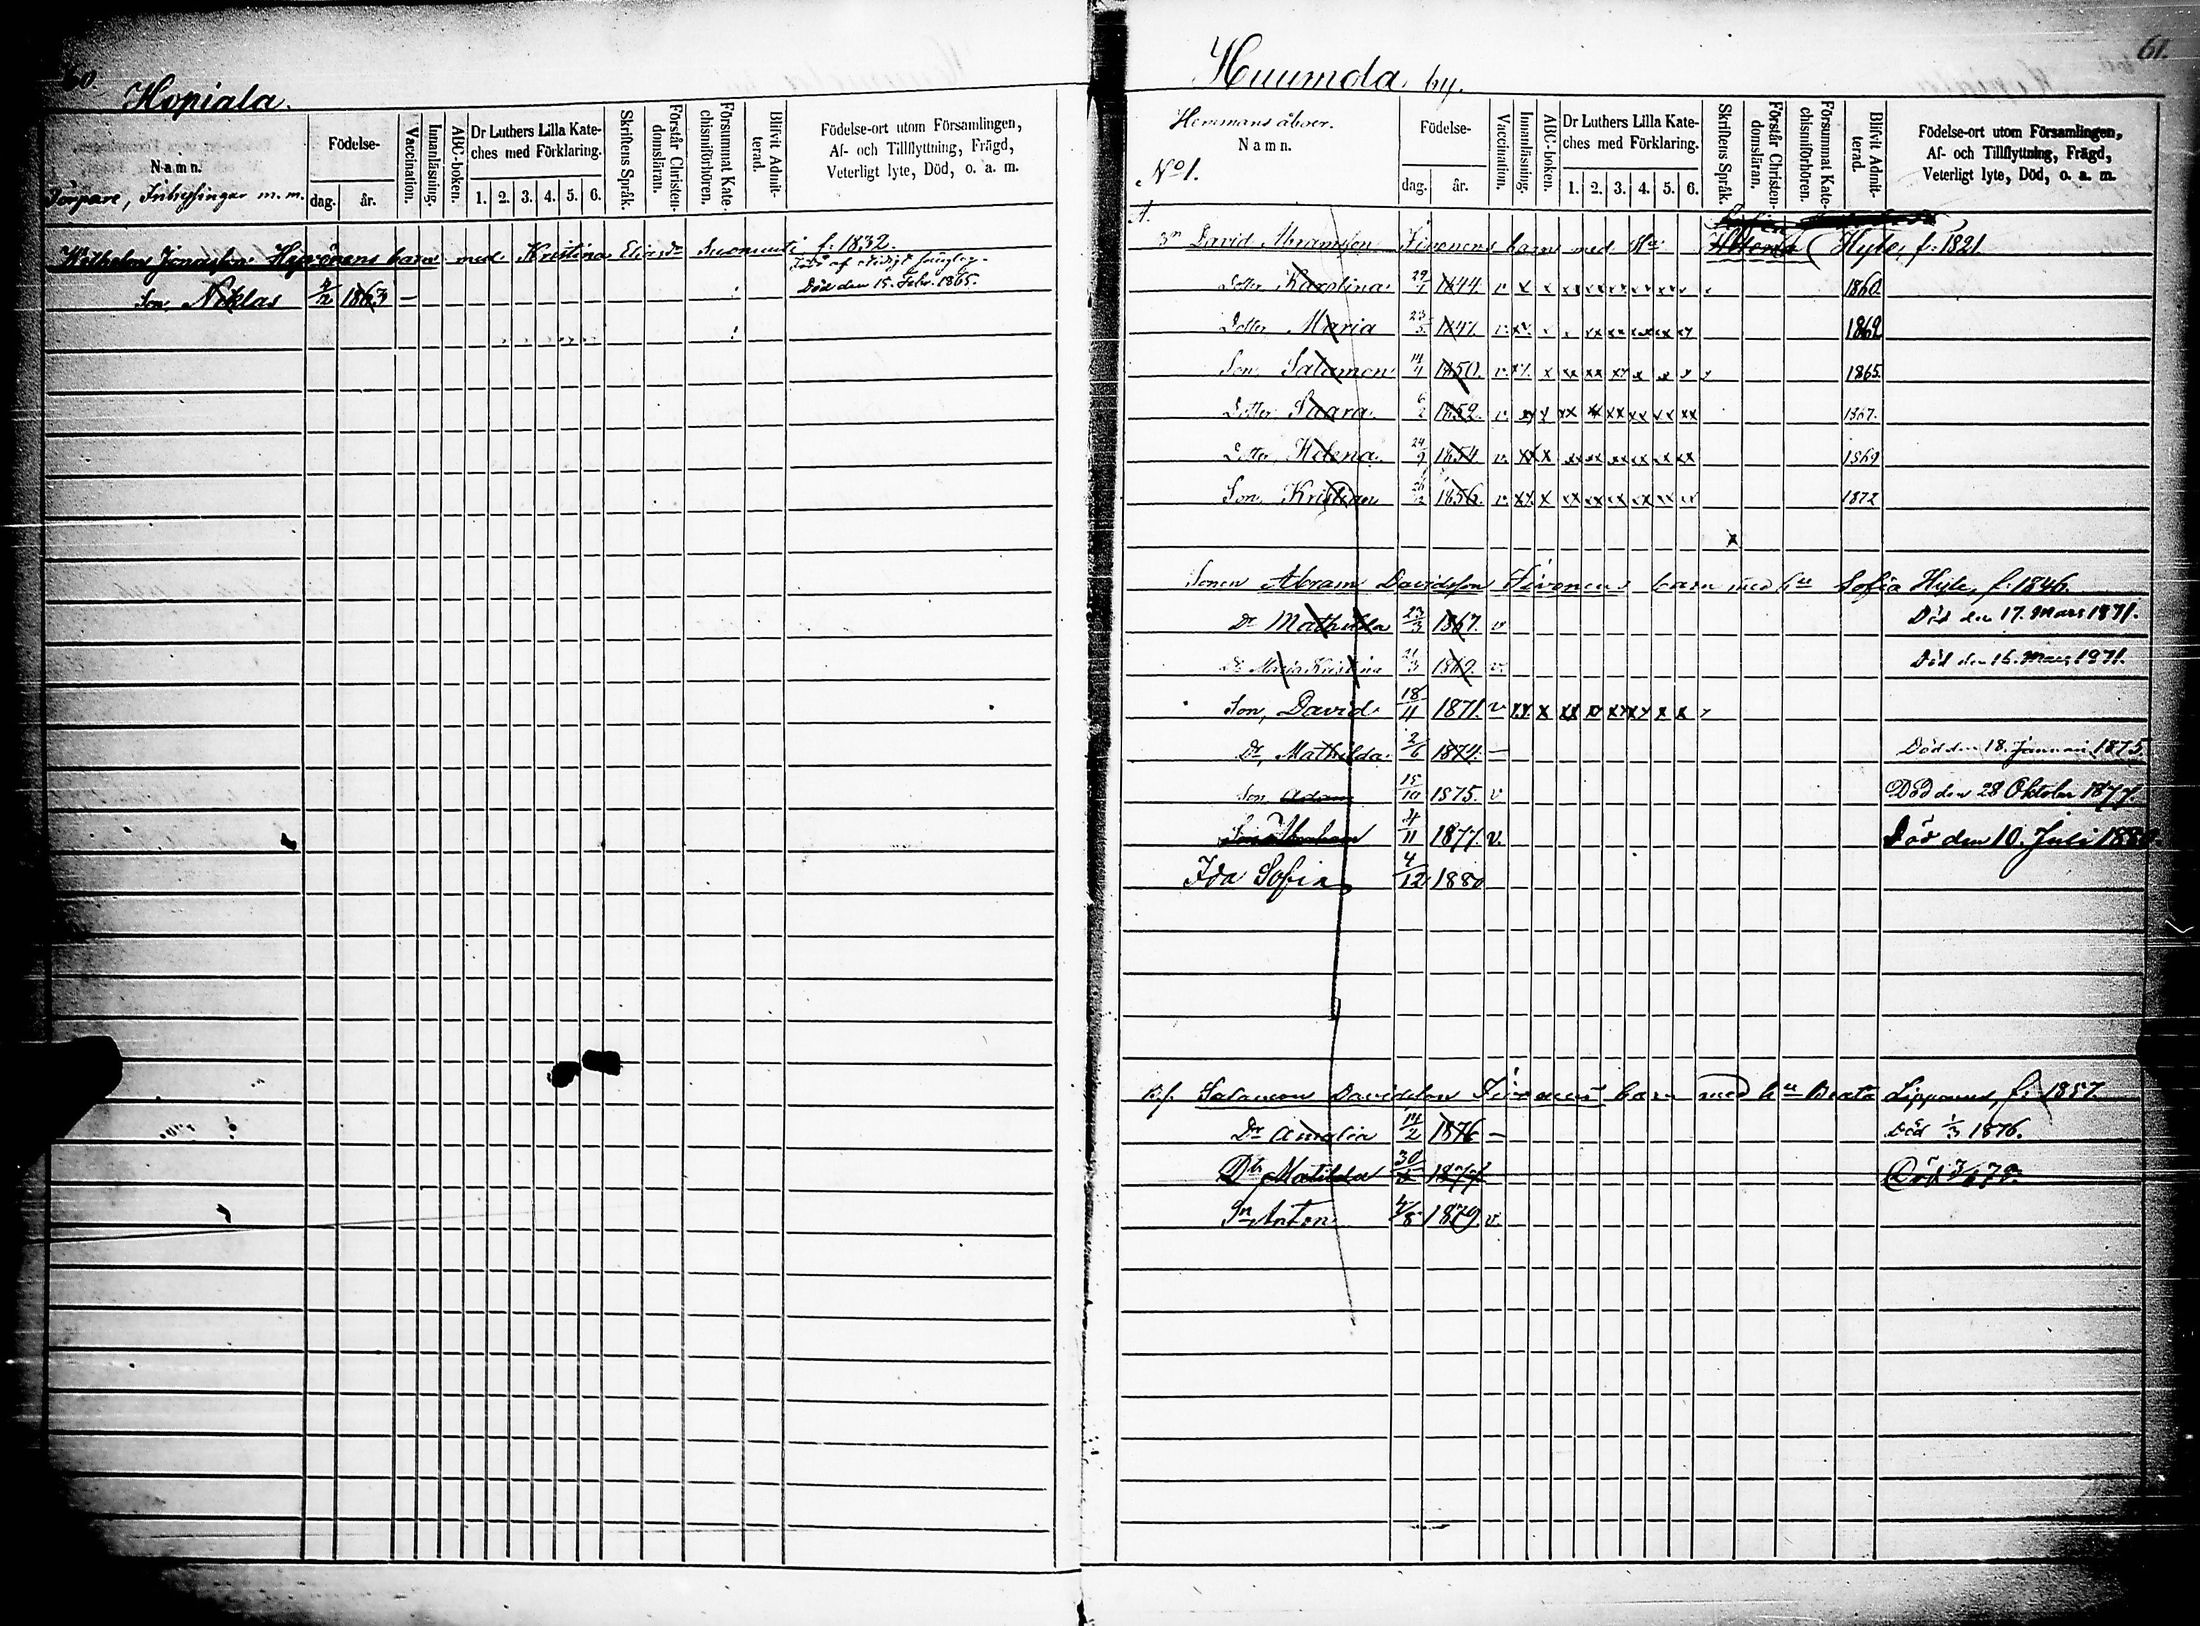 60.
Hopiala.
Namn.
Torpare, Inhysingar m. m.
Födelse-
dag. år.
Vaccination.
Innanläsning.
ABC-boken.
Dr Luthers Lilla Kate-
ches med Förklaring.
1. 2. 3. 4. 5. 6.
Skriftens Språk.
Förstår Christen-
domsläran.
Försummat Kate-
chismiförhören.
Blifvit Admit-
terad.
Födelse-ort utom Församlingen,
Af- och Tillflyttning, Frägd,
Veterligt lyte, Död, o. a. m.
Wilhelm Jonasson barn med Kristina Eliasdr Suomuti f. 1832.
Son, Niklas 4/2 1863 – Död den 15. Febr. 1865.
61.
Huumola by.
Hemmans åboer.
Namn.
No 1.
Födelse-
dag. år.
Vaccination.
Innanläsning.
ABC-boken.
Dr Luthers Lilla Kate-
ches med Förklaring.
1. 2. 3. 4. 5. 6.
Skriftens Språk.
Förstår Christen-
domsläran.
Försummat Kate-
chismiförhören.
Blifvit Admit-
terad.
Födelse-ort utom Församlingen,
Af- och Tillflyttning, Frägd,
Veterligt lyte, Död, o. a. m.
A.
David Abramsson barn med Helena Hyle, f. 1821.
Dotter Karolina 1844. v x x xx xx xx xx xx x 1860.
Dotter Maria 23/5 1847. v. xx. x x xx xx xx xx xy 1862
Son, Salomon 14/4 1850. v. xx. x xx xx xx x x x 1865.
Dotter Saara 6/2 1852. v. xx x xx xx xx xx xx xx 1867.
Dotter, Helena 24/9 1854. v. xx x xx xx xx xx xx xx 1869
Son, Kristian 26/2 1856. v. xx x xx xx xx xx xx xx 1872
x
Sonen Abram Davidsson barn med hu Sofia Hyle, f. 1846.
Dr Mathilda 23/3 1867. v Död den 17. Mars 1871.
Dr Maria Kristina 21/3 1869. v. Död den 16. Mars 1871.
Son, David 18/11 1871. v xx. x xx xx xx xx x x
Dr, Mathilda 2/6 1874. – Död den 18. Januari 1875.
Son, Adam 15/10 1875. v Död den 28 Oktober 1877.
Son Abraham 4/11 1877. v. Död den 10. Juli 1880.
Ida Sofia 4/12 1880
Salomon Davidsson barn med hu Beata Lipponen, f. 1857.
Dr Amalia 14/2 1876 – Död 1/3 1876.
Dr Matilda 1877
Sn Anton 4/8 1879. v.